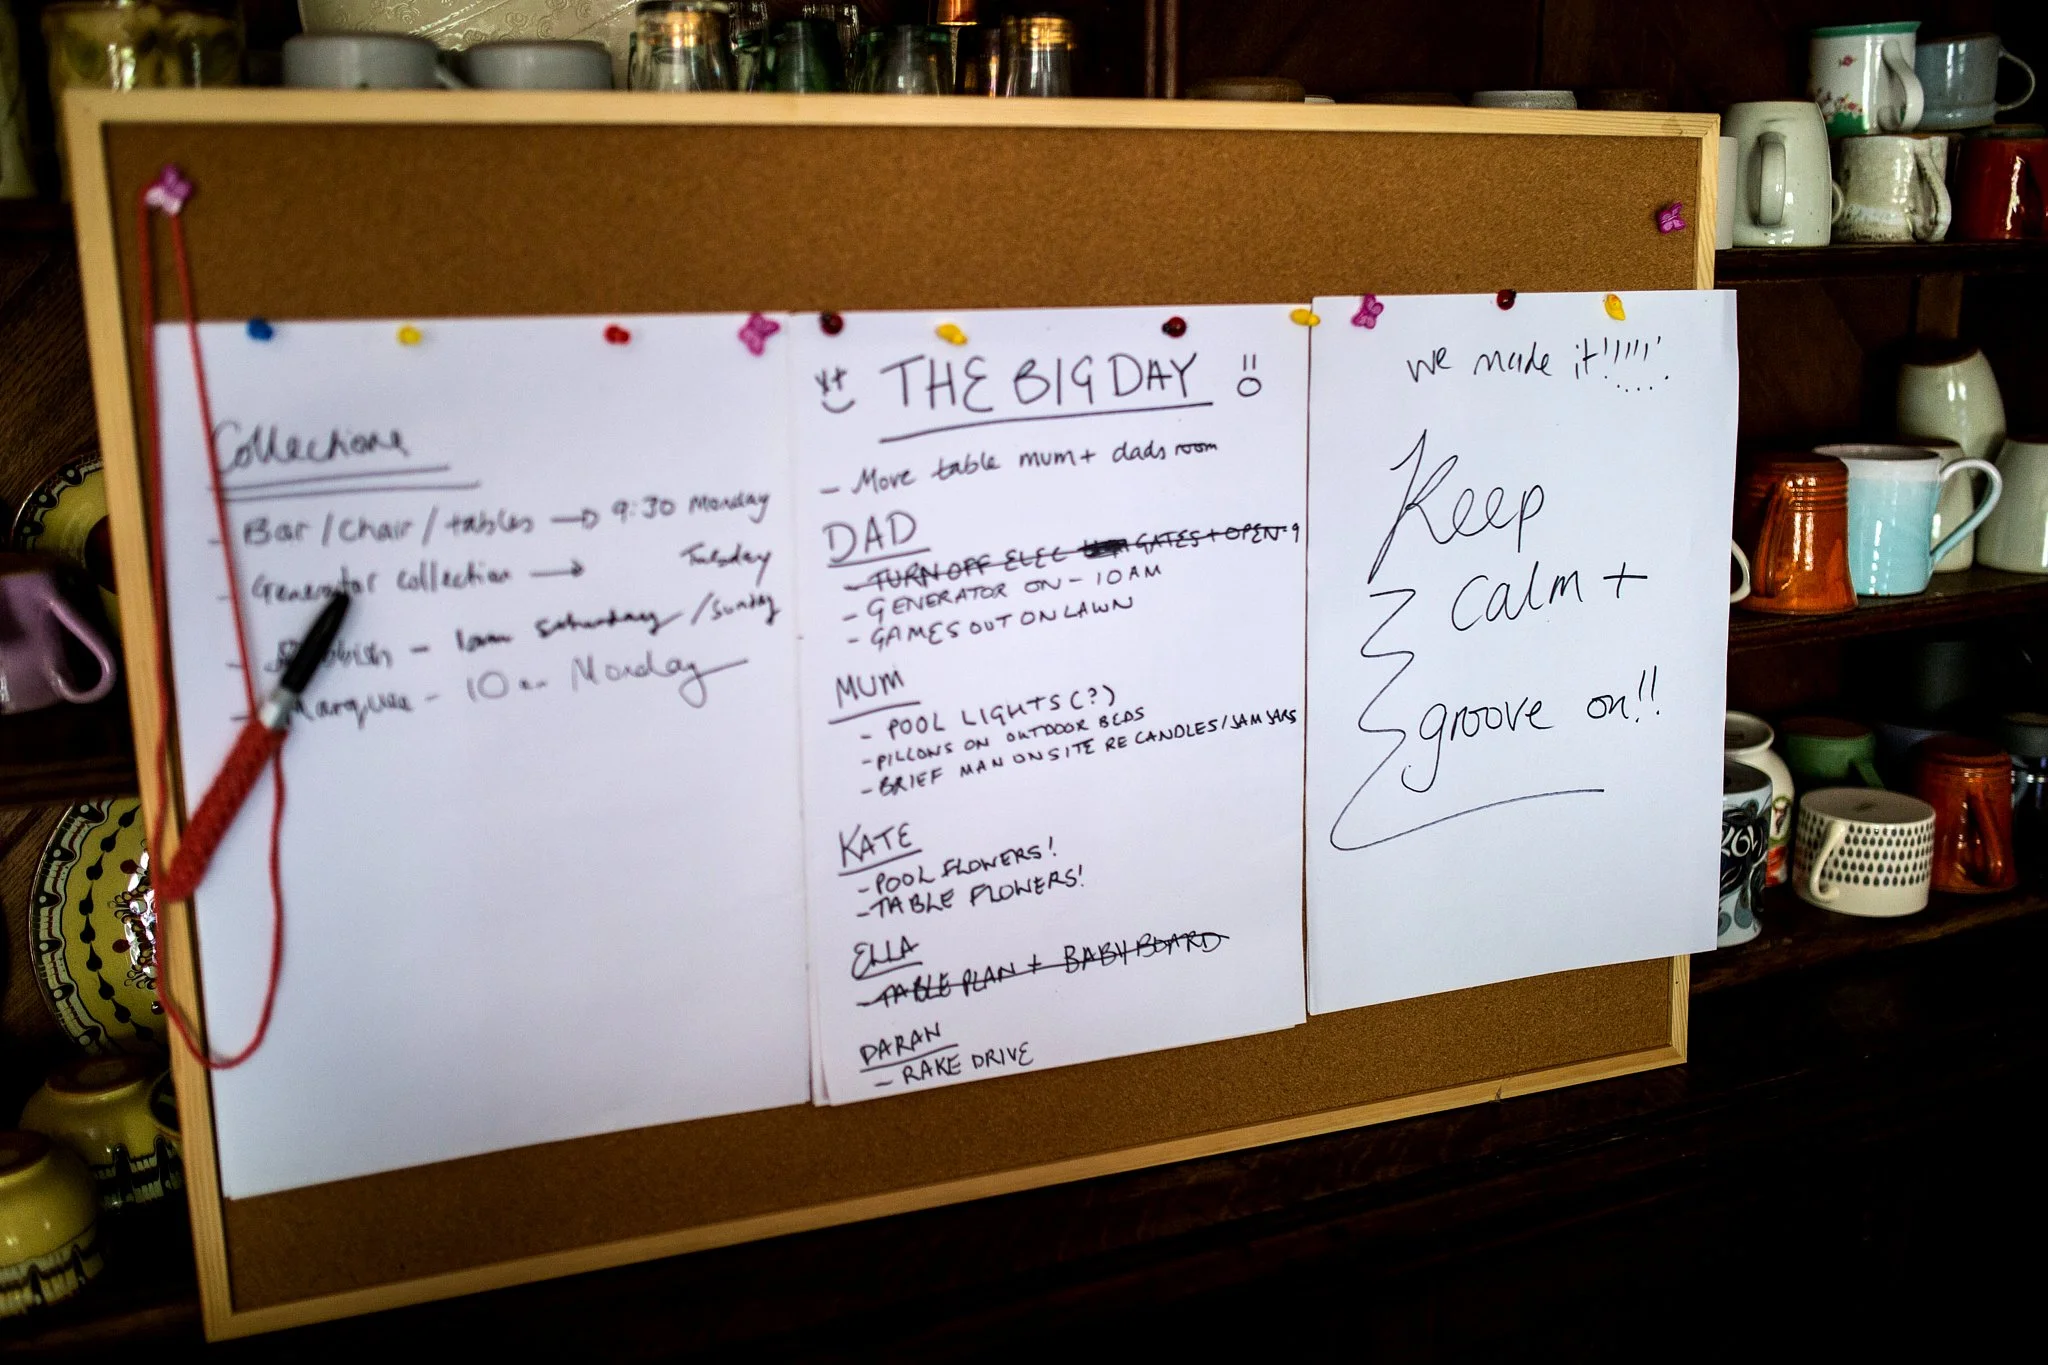 Collections
- Bar / Chair / tables → 9:30 Monday
- Generator collection → Tuesday
- Rubbish - 1am Saturday / Sunday
- Marquee - 10am Monday
THE BIG DAY
- Move table mum + dads room
DAD
- TURN OFF ELEC GATES + OPEN - 9
- GENERATOR ON - 10AM
- GAMES OUT ON LAWN
MUM
- POOL LIGHTS (?)
- PILLOWS ON OUTDOOR BEDS
- BRIEF MAN ONSITE RE CANDLES / JAM JARS
KATE
- POOL FLOWERS!
- TABLE FLOWERS!
ELLA
- TABLE PLAN + BABY BOARD
DARAN
- RAKE DRIVE
we made it!!!!!!
Keep
calm +
groove on!!